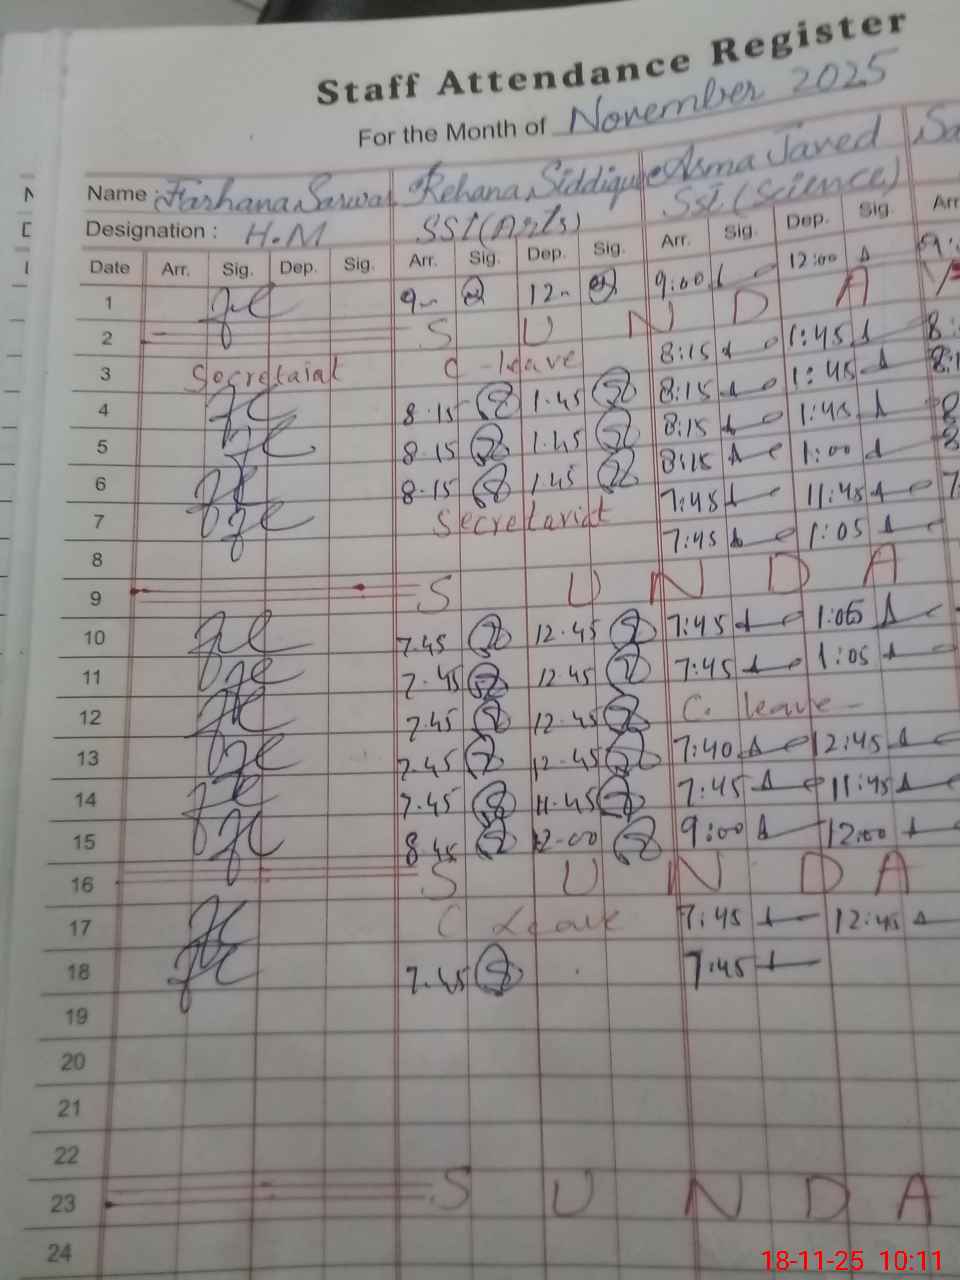 Staff Attendance Register
For the Month of November 2025
Name : Farhana Sarwar Rehana Siddique Asma Javed
Designation : H.M SST(Arts) SST (Science)
Date Arr. Sig. Dep. Sig. Arr. Sig. Dep. Sig. Arr. Sig. Dep. Sig. Arr
1 9- 12- 9:00 12:00
2 S U N D A Y
3 Secretaiat C-leave 8:15 1:45
4 8.15 1.45 8:15 1:45
5 8.15 1.45 8:15 1:45
6 8.15 1.45 8:15 1:00
7 Secretariat 7:45 11:45
8 7:45 1:05
9 S U N D A
10 7.45 12.45 7:45 1:05
11 7.45 12.45 7:45 1:05
12 7.45 12.45 C. leave
13 7.45 12.45 7:40 12:45
14 7.45 11.45 7:45 11:45
15 8.45 12.00 9:00 12:00
16 S U N D A
17 C Leave 7:45 12:45
18 7.45 7:45
19
20
21
22
23 S U N D A
24
18-11-25 10:11